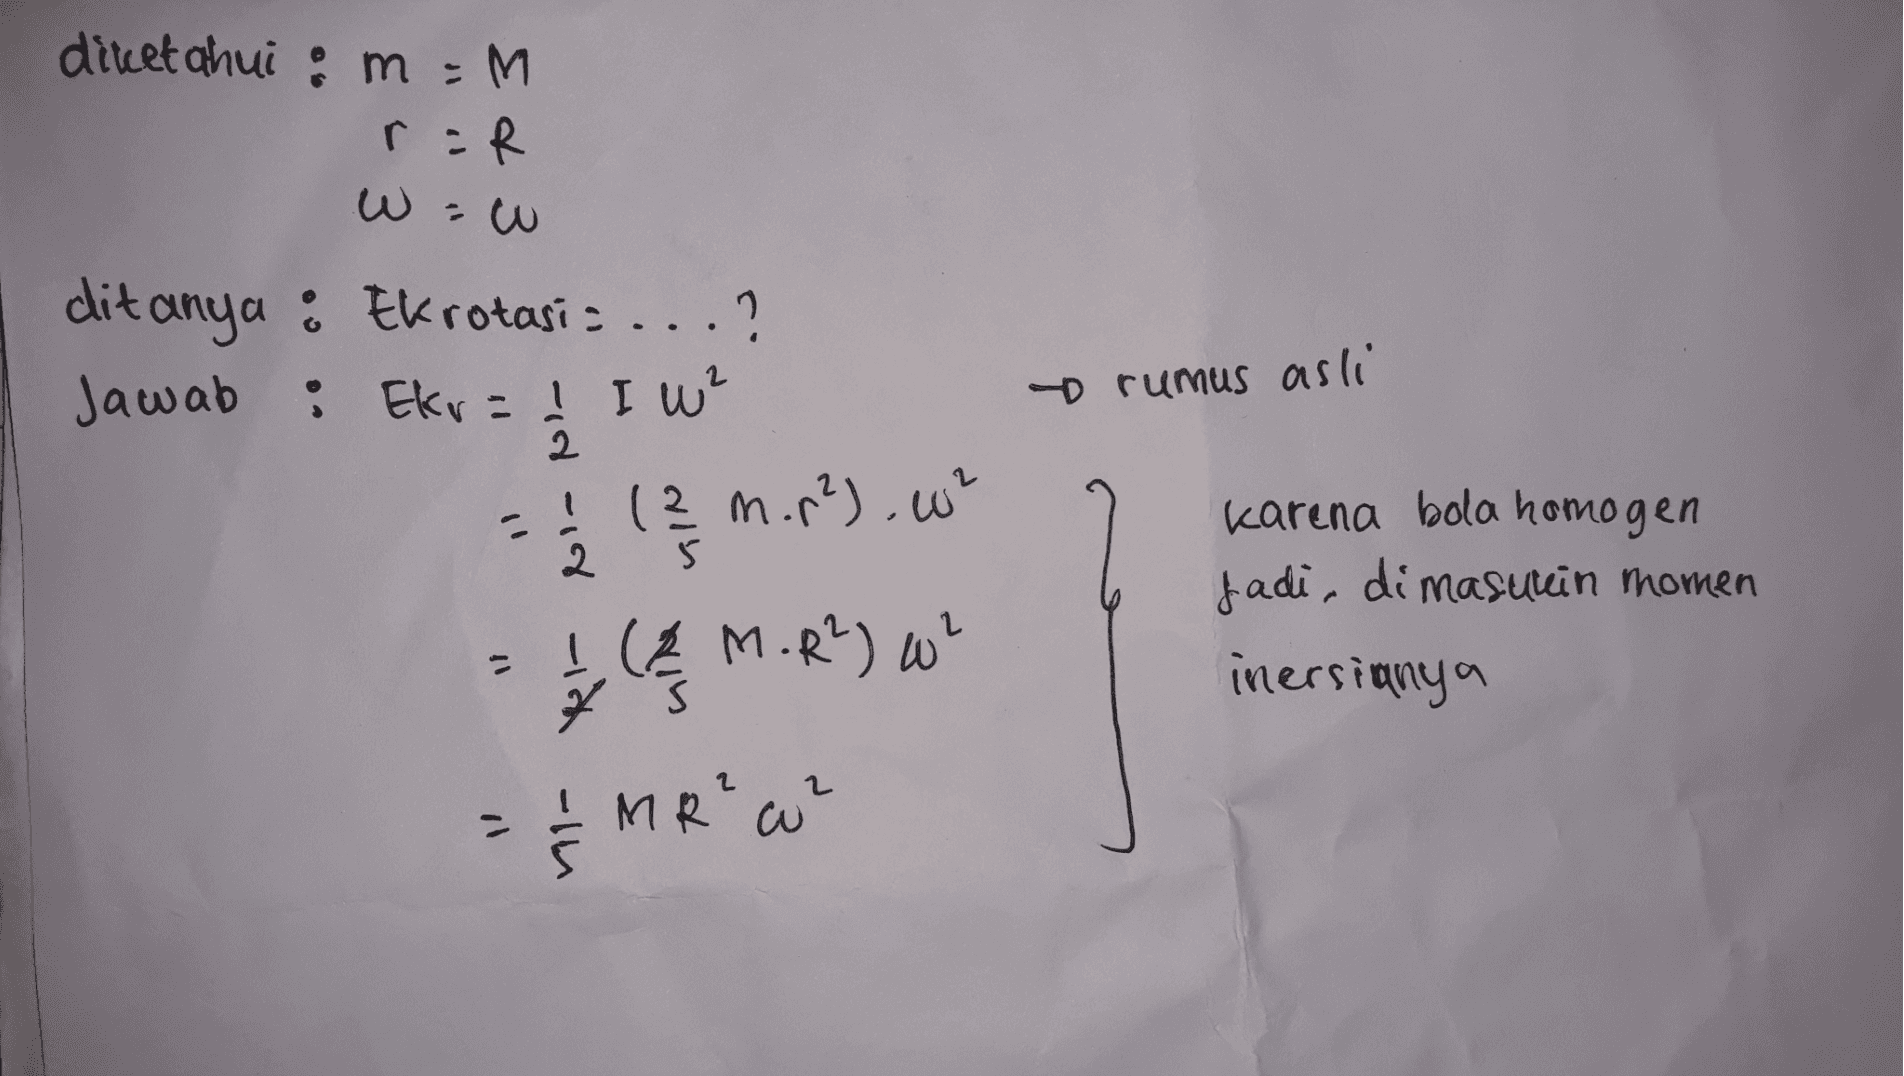 diketahui : m = M
r = R
ω = ω
ditanya : Ek rotasi = . . . . ?
Jawab : Ekr = 1/2 I ω² → rumus asli
= 1/2 (2/5 m.r²) . ω²
= 1/2 (2/5 M.R²) ω²
= 1/5 MR² ω²
karena bola homogen
jadi, dimasukin momen
inersianya